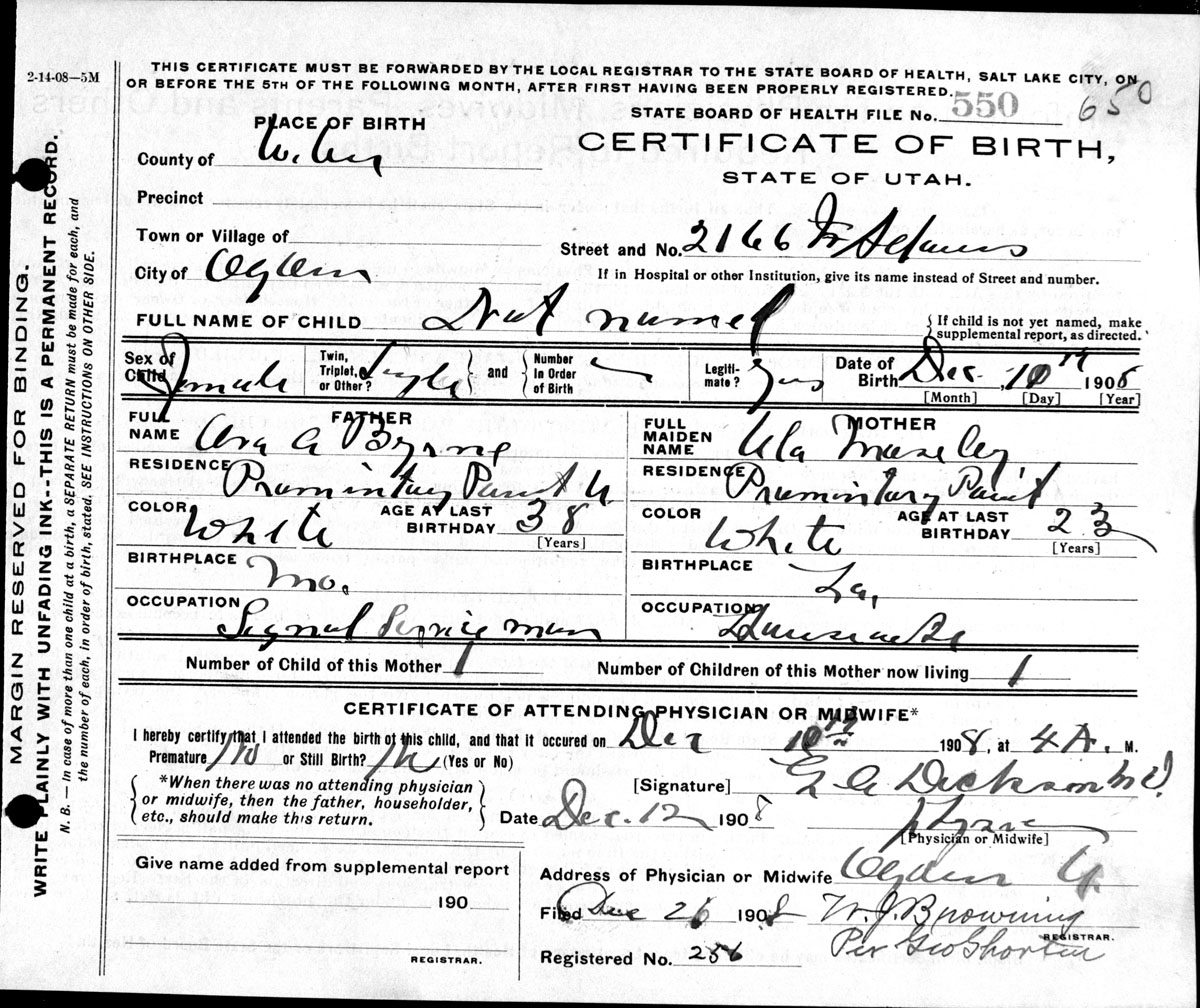 2-14-08—5M
THIS CERTIFICATE MUST BE FORWARDED BY THE LOCAL REGISTRAR TO THE STATE BOARD OF HEALTH, SALT LAKE CITY, ON
OR BEFORE THE 5TH OF THE FOLLOWING MONTH, AFTER FIRST HAVING BEEN PROPERLY REGISTERED.
STATE BOARD OF HEALTH FILE No. 550 650
PLACE OF BIRTH
CERTIFICATE OF BIRTH,
STATE OF UTAH.
County of Weber
Precinct
Town or Village of
Street and No. 2166
City of Ogden
If in Hospital or other Institution, give its name instead of Street and number.
FULL NAME OF CHILD Not named
{If child is not yet named, make
supplemental report, as directed.
Sex of Child Female
Twin, Triplet, or Other? Single } and { Number In Order of Birth
Legiti-mate? Yes
Date of Birth Dec. 10th 1908
[Month] [Day] [Year]
FATHER
FULL NAME Ora A Byrne
RESIDENCE Promintory Point U.
COLOR White AGE AT LAST BIRTHDAY 38
[Years]
BIRTHPLACE Mo.
OCCUPATION Signal Service man
MOTHER
FULL MAIDEN NAME Ula Mosley
RESIDENCE Promintory Point
COLOR White AGE AT LAST BIRTHDAY 23
[Years]
BIRTHPLACE La.
OCCUPATION Housewife
Number of Child of this Mother 1 Number of Children of this Mother now living 1
CERTIFICATE OF ATTENDING PHYSICIAN OR MIDWIFE*
I hereby certify that I attended the birth of this child, and that it occured on Dec 10th 1908, at 4 A. M.
Premature No or Still Birth? No (Yes or No)
[Signature] Dickson M.D.
*When there was no attending physician
or midwife, then the father, householder,
etc., should make this return.
Date Dec. 12 1908
[Physician or Midwife]
Give name added from supplemental report
190
REGISTRAR.
Address of Physician or Midwife Ogden U.
Filed Dec 26 1908 W. J. Browning
REGISTRAR.
Per Geo Shorten
Registered No. 256
MARGIN RESERVED FOR BINDING.
WRITE PLAINLY WITH UNFADING INK--THIS IS A PERMANENT RECORD.
N. B. — In case of more than one child at a birth, a SEPARATE RETURN must be made for each, and
the number of each, in order of birth, stated. SEE INSTRUCTIONS ON OTHER SIDE.